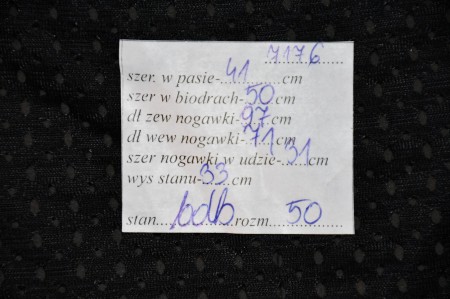 7176
szer. w pasie-41cm
szer w biodrach-50cm
dł zew nogawki-97cm
dł wew nogawki-71cm
szer nogawki w udzie-31cm
wys stanu-33cm
stan bdb rozm. 50